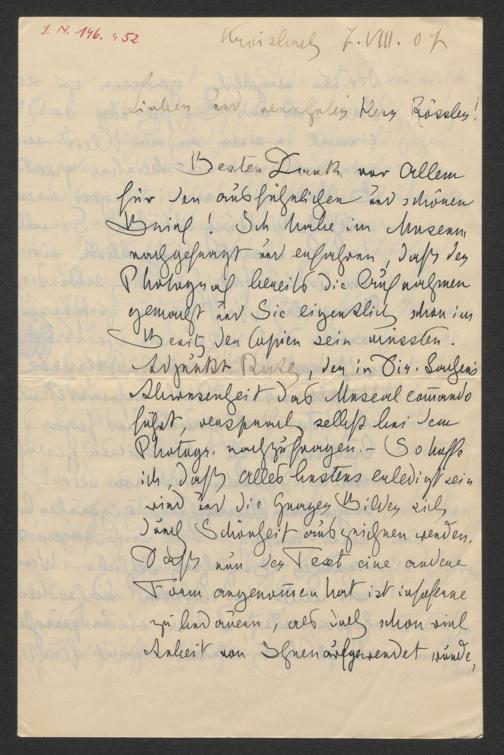 I. N. 146.452
Kroisbach 7. VIII. 07
Lieber und verehrter Herr Rössler!
Besten Dank vor Allem
für den ausführlichen und schönen
Brief! Ich habe im Museum
nachgefragt und erfahren, daß der
Photograf bereits die Aufnahmen
gemacht und Sie eigentlich schon im
Besitz der Copien sein müssten.
Adjunkt, der in Dir.
Abwesenheit das Museal comando
führt versprach selbst bei dem
Photogr. nachzufragen. – So hoffe
ich daß alles bestens erledigt sein
wird und die Grazer Bilder sich
durch Schönheit auszeichnen werden.
Daß nun der Text eine andere
Form angenommen hat ist insoferne
zu bedauern, als doch schon viel
Arbeit von Ihnen aufgewendet wurde,